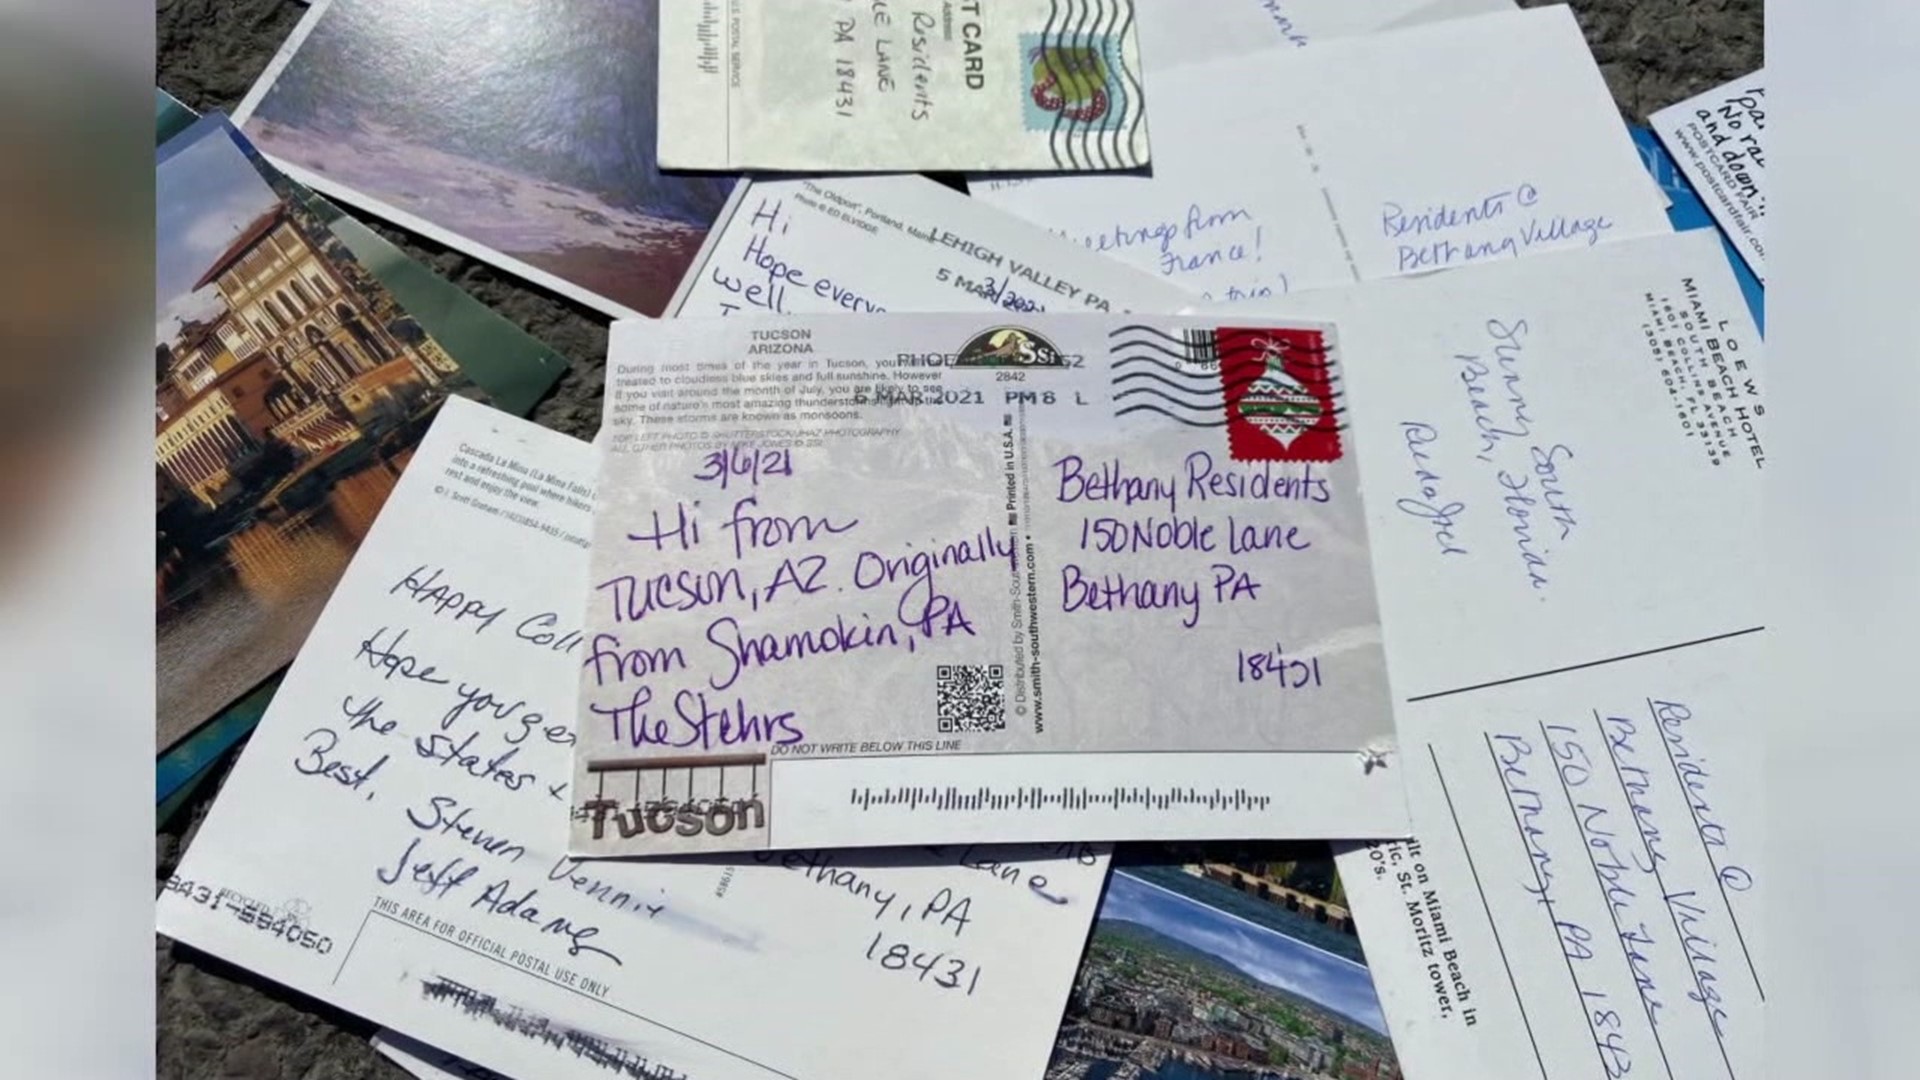 ST CARD
Address
Residents
LE LANE
PA 18431
POSTAL SERVICE
"The Oldport", Portland, Maine
Photo © ED ELVIDGE
Hi
Hope every
well.
LEHIGH VALLEY PA
5 MAR 2021
Greetings from
France!
Residents @
Bethany Village
No rai
and down
POSTCARD FAIR
www.postcardfair.co
LOEWS
MIAMI BEACH HOTEL
SOUTH BEACH
1601 COLLINS AVENUE
MIAMI BEACH, FL 33139
(305) 604-1601
Sunny South
Beach, Florida.
TUCSON
ARIZONA
During most times of the year in Tucson, you
treated to cloudless blue skies and full sunshine. However
if you visit around the month of July, you are likely to see
some of nature's most amazing thunderstorms light up the
sky. These storms are known as monsoons.
TOP LEFT PHOTO © SHUTTERSTOCK/JHAZ PHOTOGRAPHY
ALL OTHER PHOTOS BY MIKE JONES © SSI
PHOE
852
6 MAR 2021 PM 8 L
SSI
2842
3/6/21
Hi from
Tucson, AZ. Originally
from Shamokin, PA
The Stehrs
Bethany Residents
150 Noble Lane
Bethany PA
18431
© Distributed by Smith-Southwestern
Printed in U.S.A.
www.smith-southwestern.com
DO NOT WRITE BELOW THIS LINE
Tucson
Cascada La Mina (La Mina Falls)
into a refreshing pool where hikers
rest and enjoy the view.
HAPPY Coll
Hope you
the states &
Best,
Steven Vennie
Jeff Adams
Lane
Bethany, PA
18431
RECYCLED
THIS AREA FOR OFFICIAL POSTAL USE ONLY
Residents @
Bethany Village
150 Noble Lane
Bethany, PA 1843
lt on Miami Beach in
ric, St. Moritz tower,
20's.